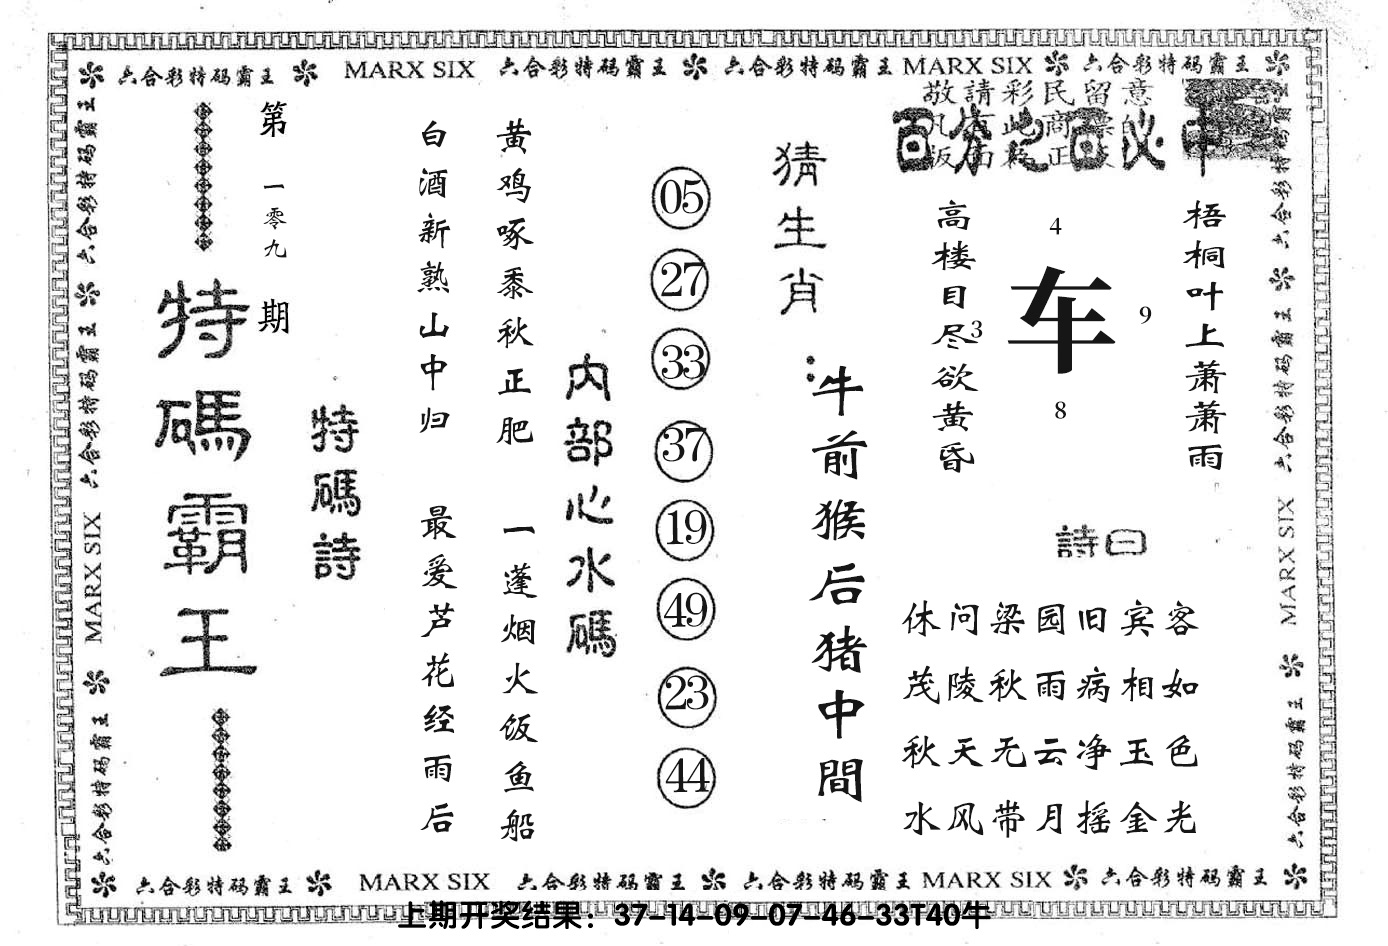 六合彩特码霸王 MARX SIX 六合彩特码霸王 六合彩特码霸王 MARX SIX 六合彩特码霸王
敬請彩民留意
百分之百必中
梧桐叶上萧萧雨
高楼目尽欲黄昏
4
车
3
9
8
詩曰
休问梁园旧宾客
茂陵秋雨病相如
秋天无云净玉色
水风带月摇金光
猜生肖：
牛前猴后猪中間
05
27
33
37
19
49
23
44
内部心水碼
黄鸡啄黍秋正肥
一蓬烟火饭鱼船
白酒新熟山中归
最爱芦花经雨后
特碼詩
第一零九期
特碼霸王
六合彩特码霸王
六合彩特码霸王
MARX SIX
六合彩特码霸王
六合彩特码霸王
六合彩特码霸王
MARX SIX
六合彩特码霸王
六合彩特码霸王 MARX SIX 六合彩特码霸王 六合彩特码霸王 MARX SIX 六合彩特码霸王
上期开奖结果：37-14-09-07-46-33T40牛